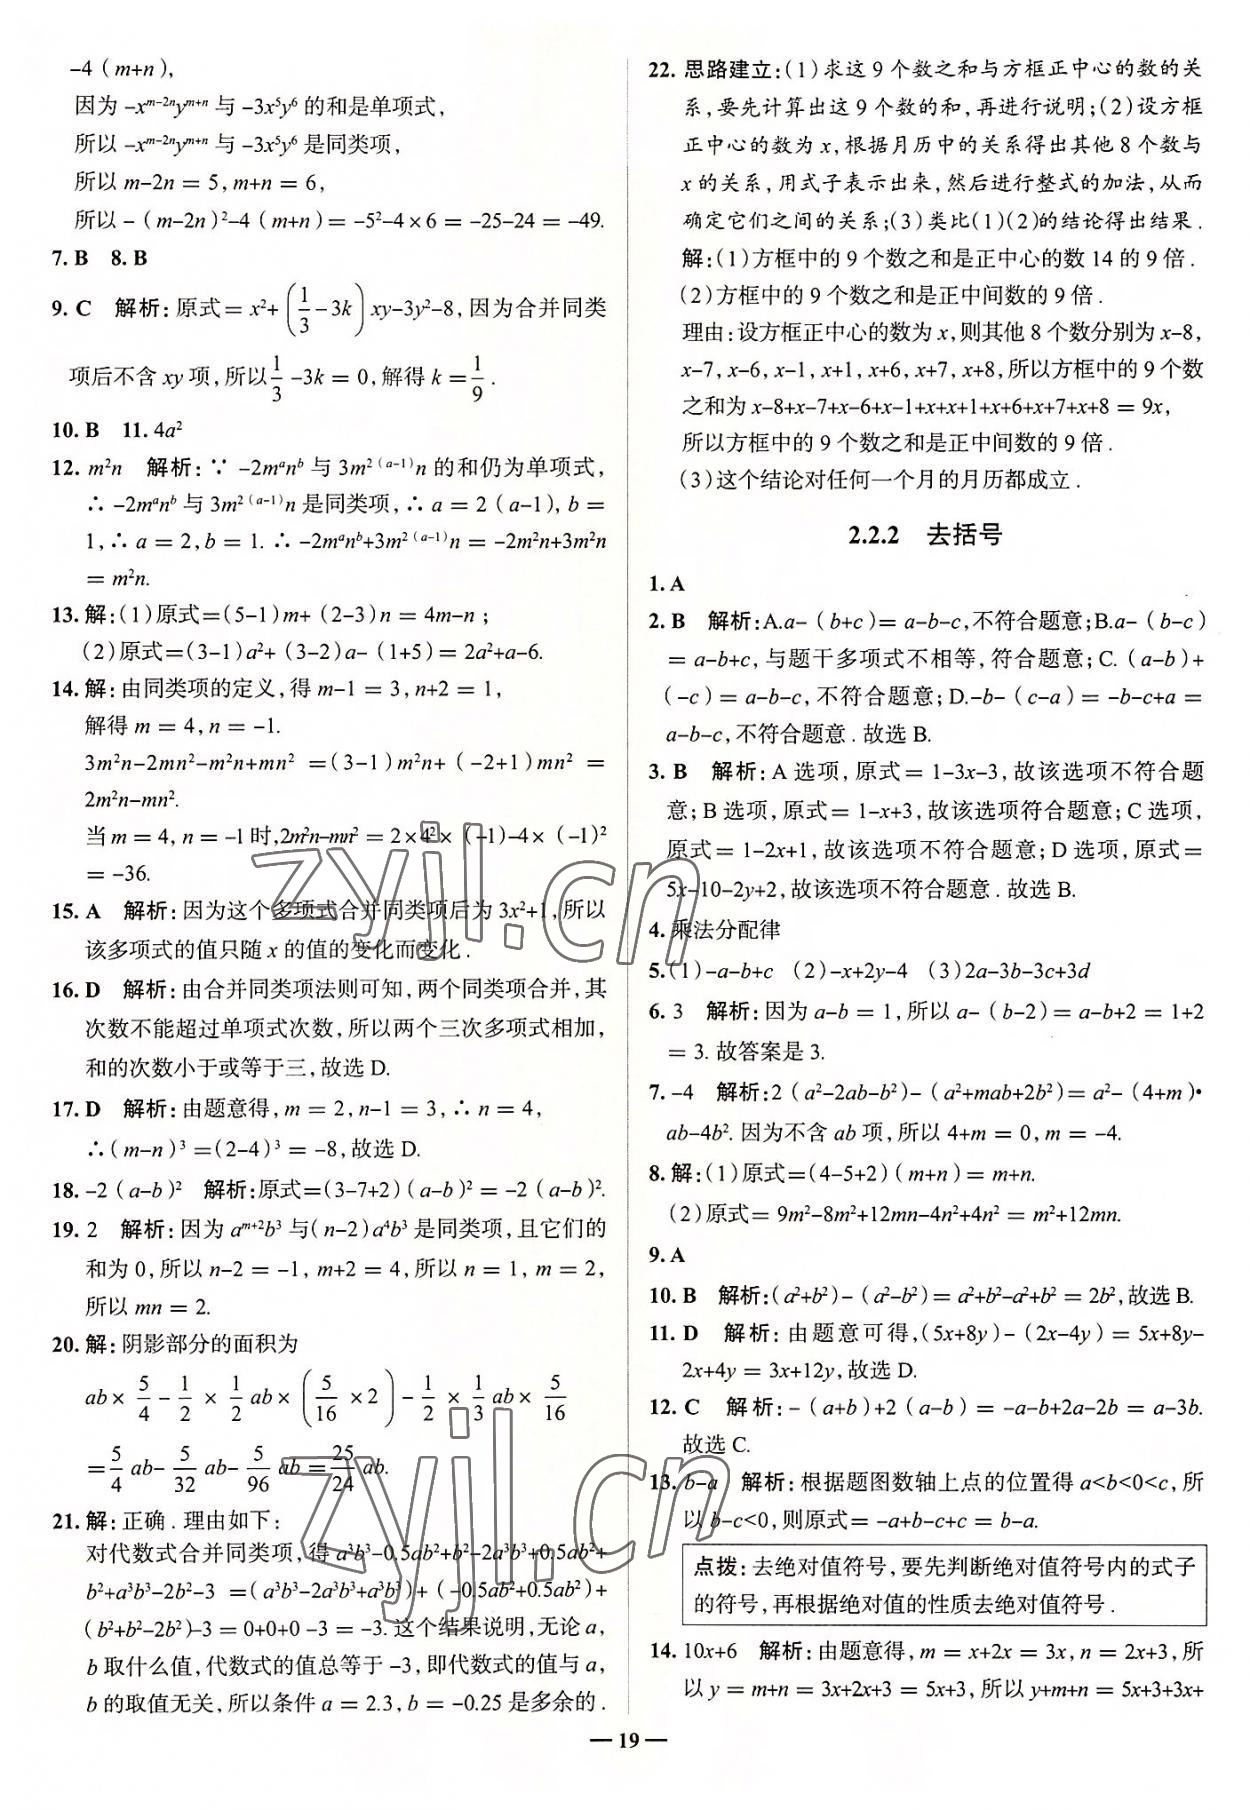 -4(m+n),
因为 -x^{m-2n}y^{m+n} 与 -3x⁵y⁶ 的和是单项式,
所以 -x^{m-2n}y^{m+n} 与 -3x⁵y⁶ 是同类项,
所以 m-2n = 5, m+n = 6,
所以 -(m-2n)²-4(m+n) = -5²-4×6 = -25-24 = -49.
7. B  8. B
9. C  解析:原式 = x²+(1/3-3k)xy-3y²-8,因为合并同类
项后不含 xy 项,所以 1/3-3k = 0,解得 k = 1/9.
10. B  11. 4a²
12. m²n  解析:∵ -2mᵃnᵇ 与 3m^{2(a-1)}n 的和仍为单项式,
∴ -2mᵃnᵇ 与 3m^{2(a-1)}n 是同类项,∴ a = 2(a-1), b =
1,∴ a = 2, b = 1. ∴ -2mᵃnᵇ+3m^{2(a-1)}n = -2m²n+3m²n
= m²n.
13. 解:(1)原式=(5-1)m+(2-3)n = 4m-n;
(2)原式=(3-1)a²+(3-2)a-(1+5) = 2a²+a-6.
14. 解:由同类项的定义,得 m-1 = 3, n+2 = 1,
解得 m = 4, n = -1.
3m²n-2mn²-m²n+mn² =(3-1)m²n+(-2+1)mn² =
2m²n-mn².
当 m = 4, n = -1 时,2m²n-mn² = 2×4²×(-1)-4×(-1)²
= -36.
15. A  解析:因为这个多项式合并同类项后为 3x²+1,所以
该多项式的值只随 x 的值的变化而变化.
16. D  解析:由合并同类项法则可知,两个同类项合并,其
次数不能超过单项式次数,所以两个三次多项式相加,
和的次数小于或等于三,故选 D.
17. D  解析:由题意得, m = 2, n-1 = 3, ∴ n = 4,
∴(m-n)³ =(2-4)³ = -8,故选 D.
18. -2(a-b)²  解析:原式=(3-7+2)(a-b)² = -2(a-b)².
19. 2  解析:因为 a^{m+2}b³ 与(n-2)a⁴b³ 是同类项,且它们的
和为 0,所以 n-2 = -1, m+2 = 4,所以 n = 1, m = 2,
所以 mn = 2.
20. 解:阴影部分的面积为
ab×5/4-1/2×1/2ab×(5/16×2)-1/2×1/3ab×5/16
=5/4ab-5/32ab-5/96ab=25/24ab.
21. 解:正确.理由如下:
对代数式合并同类项,得 a³b³-0.5ab²+b²-2a³b³+0.5ab²+
b²+a³b³-2b²-3 =(a³b³-2a³b³+a³b³)+(-0.5ab²+0.5ab²)+
(b²+b²-2b²)-3 = 0+0+0-3 = -3.这个结果说明,无论 a,
b 取什么值,代数式的值总等于 -3,即代数式的值与 a,
b 的取值无关,所以条件 a = 2.3, b = -0.25 是多余的.
22. 思路建立:(1)求这 9 个数之和与方框正中心的数的关
系,要先计算出这 9 个数的和,再进行说明;(2)设方框
正中心的数为 x,根据月历中的关系得出其他 8 个数与
x 的关系,用式子表示出来,然后进行整式的加法,从而
确定它们之间的关系;(3)类比(1)(2)的结论得出结果.
解:(1)方框中的 9 个数之和是正中心的数 14 的 9 倍.
(2)方框中的 9 个数之和是正中间数的 9 倍.
理由:设方框正中心的数为 x,则其他 8 个数分别为 x-8,
x-7, x-6, x-1, x+1, x+6, x+7, x+8,所以方框中的 9 个数
之和为 x-8+x-7+x-6+x-1+x+x+1+x+6+x+7+x+8 = 9x,
所以方框中的 9 个数之和是正中间数的 9 倍.
(3)这个结论对任何一个月的月历都成立.
2.2.2 去括号
1. A
2. B  解析:A.a-(b+c)= a-b-c,不符合题意;B.a-(b-c)
= a-b+c,与题干多项式不相等,符合题意;C.(a-b)+
(-c)= a-b-c,不符合题意;D.-b-(c-a)= -b-c+a =
a-b-c,不符合题意.故选 B.
3. B  解析:A 选项,原式= 1-3x-3,故该选项不符合题
意;B 选项,原式= 1-x+3,故该选项符合题意;C 选项,
原式= 1-2x+1,故该选项不符合题意;D 选项,原式=
5x-10-2y+2,故该选项不符合题意.故选 B.
4. 乘法分配律
5.(1)-a-b+c (2)-x+2y-4 (3)2a-3b-3c+3d
6. 3  解析:因为 a-b = 1,所以 a-(b-2)= a-b+2 = 1+2
= 3.故答案是 3.
7. -4  解析:2(a²-2ab-b²)-(a²+mab+2b²)= a²-(4+m)·
ab-4b².因为不含 ab 项,所以 4+m = 0, m = -4.
8. 解:(1)原式=(4-5+2)(m+n)= m+n.
(2)原式= 9m²-8m²+12mn-4n²+4n² = m²+12mn.
9. A
10. B  解析:(a²+b²)-(a²-b²)= a²+b²-a²+b² = 2b²,故选 B.
11. D  解析:由题意可得,(5x+8y)-(2x-4y)= 5x+8y-
2x+4y = 3x+12y,故选 D.
12. C  解析:-(a+b)+2(a-b)= -a-b+2a-2b = a-3b.
故选 C.
13. b-a  解析:根据题图数轴上点的位置得 a<b<0<c,所
以 b-c<0,则原式= -a+b-c+c = b-a.
点拨:去绝对值符号,要先判断绝对值符号内的式子
的符号,再根据绝对值的性质去绝对值符号.
14. 10x+6  解析:由题意得, m = x+2x = 3x, n = 2x+3,所
以 y = m+n = 3x+2x+3 = 5x+3,所以 y+m+n = 5x+3+3x+
— 19 —
zyjl.cn
zyjl.cn